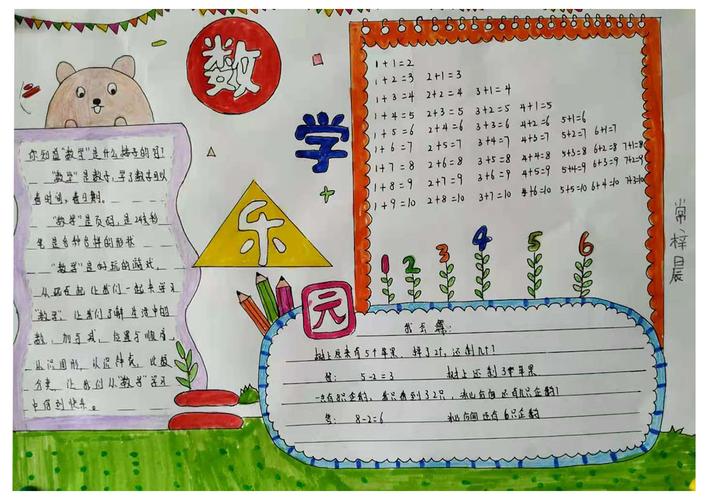 数
学
乐
园
你知道"数学"是什么样子的吗?
"数学"是数字,学了数字可以
看时间,看日期。
"数学"是页码,是
是各种各样的形状
"数学"是好玩的游戏。
让我们一起去学习
"数学",让我们了解生活中的
数,加与减,位置于顺序,
认识图形,认识钟表,比较
分类,让我们从"数学"学习
中得到快乐。
1+1=2
1+2=3 2+1=3
1+3=4 2+2=4 3+1=4
1+4=5 2+3=5 3+2=5 4+1=5
1+5=6 2+4=6 3+3=6 4+2=6 5+1=6
1+6=7 2+5=7 3+4=7 4+3=7 5+2=7 6+1=7
1+7=8 2+6=8 3+5=8 4+4=8 5+3=8 6+2=8 7+1=8
1+8=9 2+7=9 3+6=9 4+5=9 5+4=9 6+3=9 7+2=9
1+9=10 2+8=10 3+7=10 4+6=10 5+5=10 6+4=10 7+3=10
1 2 3 4 5 6
我会算:
树上原来有5个苹果,摘了2个,还剩几个?
答: 5-2=3 树上还剩3个苹果
一共有8只企鹅,我只看到了2只,冰山后面还有几只企鹅?
答: 8-2=6 冰山后面还有6只企鹅
常梓晨